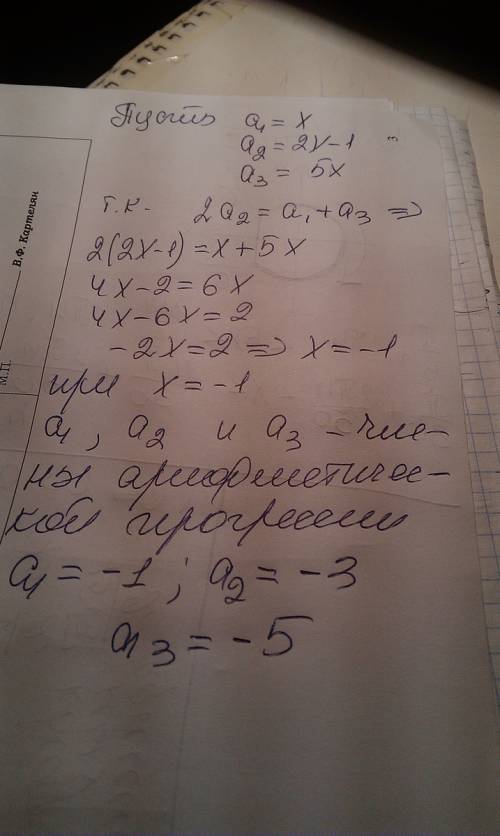 Пусть a₁ = x
a₂ = 2x-1
a₃ = 5x
т.к. 2a₂ = a₁ + a₃ ⇒
2(2x-1) = x + 5x
4x-2 = 6x
4x-6x = 2
-2x = 2 ⇒ x = -1
при x = -1
a₁, a₂ и a₃ - чле-
ны арифметичес-
кой прогрессии
a₁ = -1; a₂ = -3
a₃ = -5
В.Ф. Картелян
М.П.